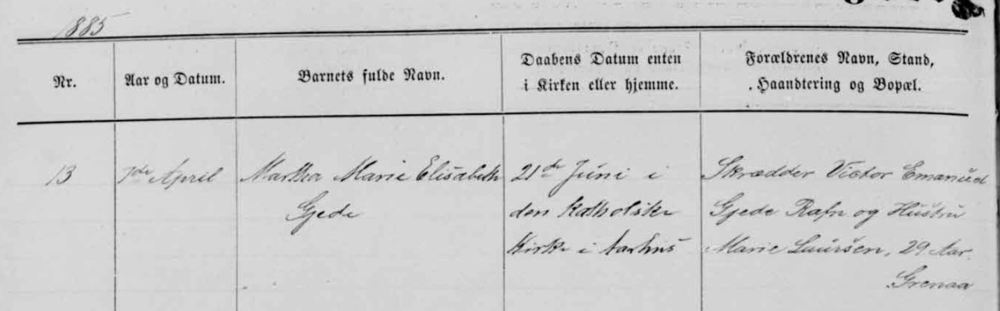 1885
Nr.
Aar og Datum.
Barnets fulde Navn.
Daabens Datum enten
i Kirken eller hjemme.
Forældrenes Navn, Stand,
Haandtering og Bopæl.
13
7de April
Martha Marie Elisabeth
Gjede
21de Juni i
den Katholske
Kirke i Aarhus
Skrædder Victor Emanuel
Gjede Rafn og Hustru
Marie Laursen, 29 Aar.
Grenaa